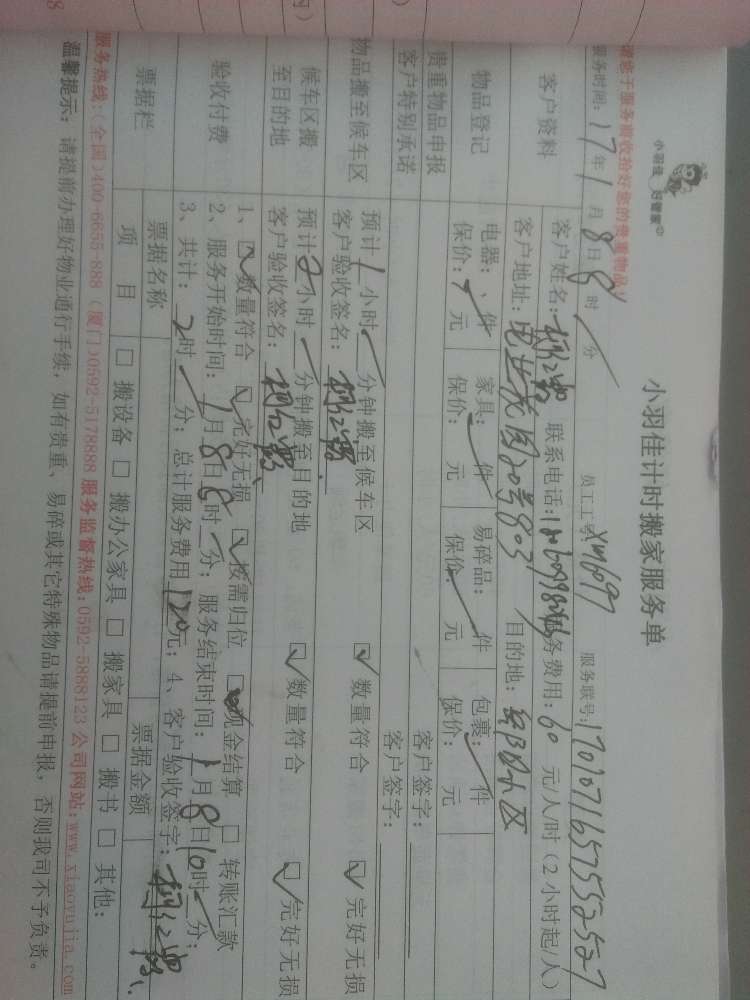 小羽佳 好管家
小羽佳计时搬家服务单
请您于服务前收拾好您的贵重物品!
服务时间: 17年1月8日8时 分 员工工号: XM6097 服务联号: 1701071657552527
客户资料
客户姓名: 联系电话: 服务费用: 60 元/人/时 (2小时起/人)
客户地址: 20号803 目的地: 小区
物品登记
电器: 件 家具: 件 易碎品: 件 包裹: 件
保价: 元 保价: 元 保价: 元 保价: 元
贵重物品申报 客户签字:
客户特别承诺 客户签字:
物品搬至候车区
预计1小时 分钟搬至候车区
客户验收签名: 数量符合 完好无损
候车区搬至目的地
预计2小时 分钟搬至目的地
客户验收签名: 数量符合 完好无损
验收付费
1、 数量符合 完好无损 按需归位 现金结算 转账汇款
2、服务开始时间: 1月8日8时 分; 服务结束时间: 1月8日10时 分;
3、共计: 2时 分; 总计服务费用120元; 4、客户验收签字:
票据栏
票据名称 票据金额
项 目 搬设备 搬办公家具 搬家具 搬书 其他:
服务热线:(全国)400-6655-888 (厦门)0592-5178888 服务监督热线:0592-5888123 公司网站:www.xiaoyujia.com
温馨提示: 请提前办理好物业通行手续, 如有贵重、易碎或其它特殊物品请提前申报, 否则我司不予负责。